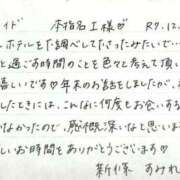 イド 本指名 I様♡ R7.12.
ホテルをな調べして下さったみたいで…
と過ごす時間のことを色々と考えて頂
嬉しいです♡年末のお話をしましたが
したときには、こんなに何度もお会いする
なかったので、感慨深いなと思いま
いお時間をありがとうございます♡
新條 すみれ